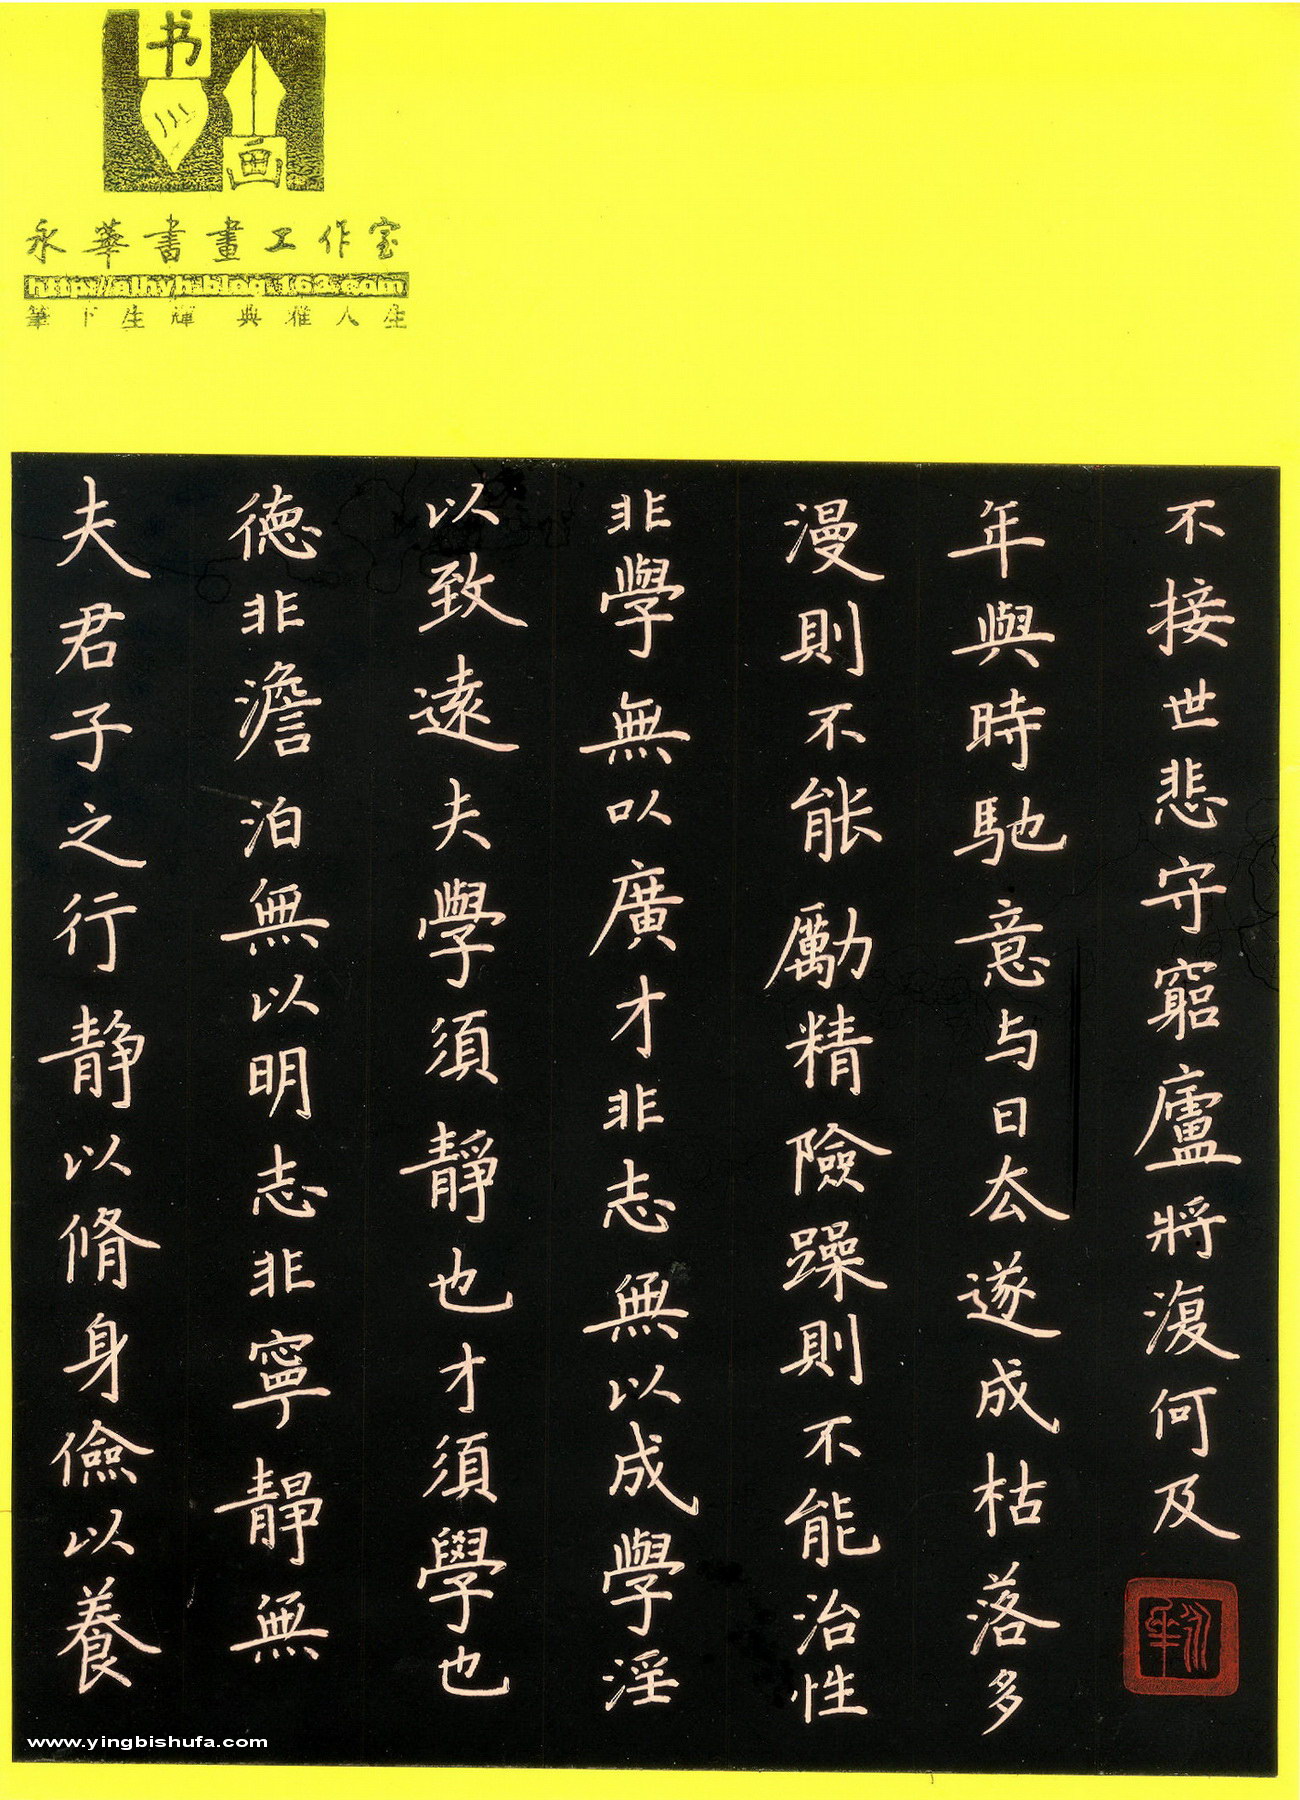 书
画
永華書畫工作室
http://alhyh.blog.163.com
筆下生輝 典雅人生
夫君子之行静以脩身儉以養
德非澹泊無以明志非寧靜無
以致遠夫學須靜也才須學也
非學無以廣才非志無以成學淫
漫則不能勵精險躁則不能治性
年與時馳意与日去遂成枯落多
不接世悲守窮廬將復何及
www.yingbishufa.com